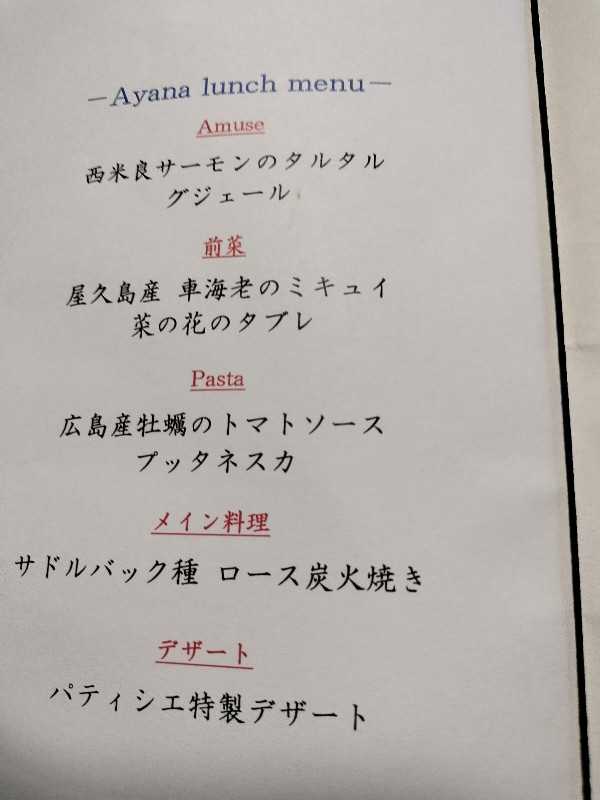 －Ayana lunch menu－
Amuse
西米良サーモンのタルタル
グジェール
前菜
屋久島産 車海老のミキュイ
菜の花のタブレ
Pasta
広島産牡蠣のトマトソース
プッタネスカ
メイン料理
サドルバック種 ロース炭火焼き
デザート
パティシエ特製デザート